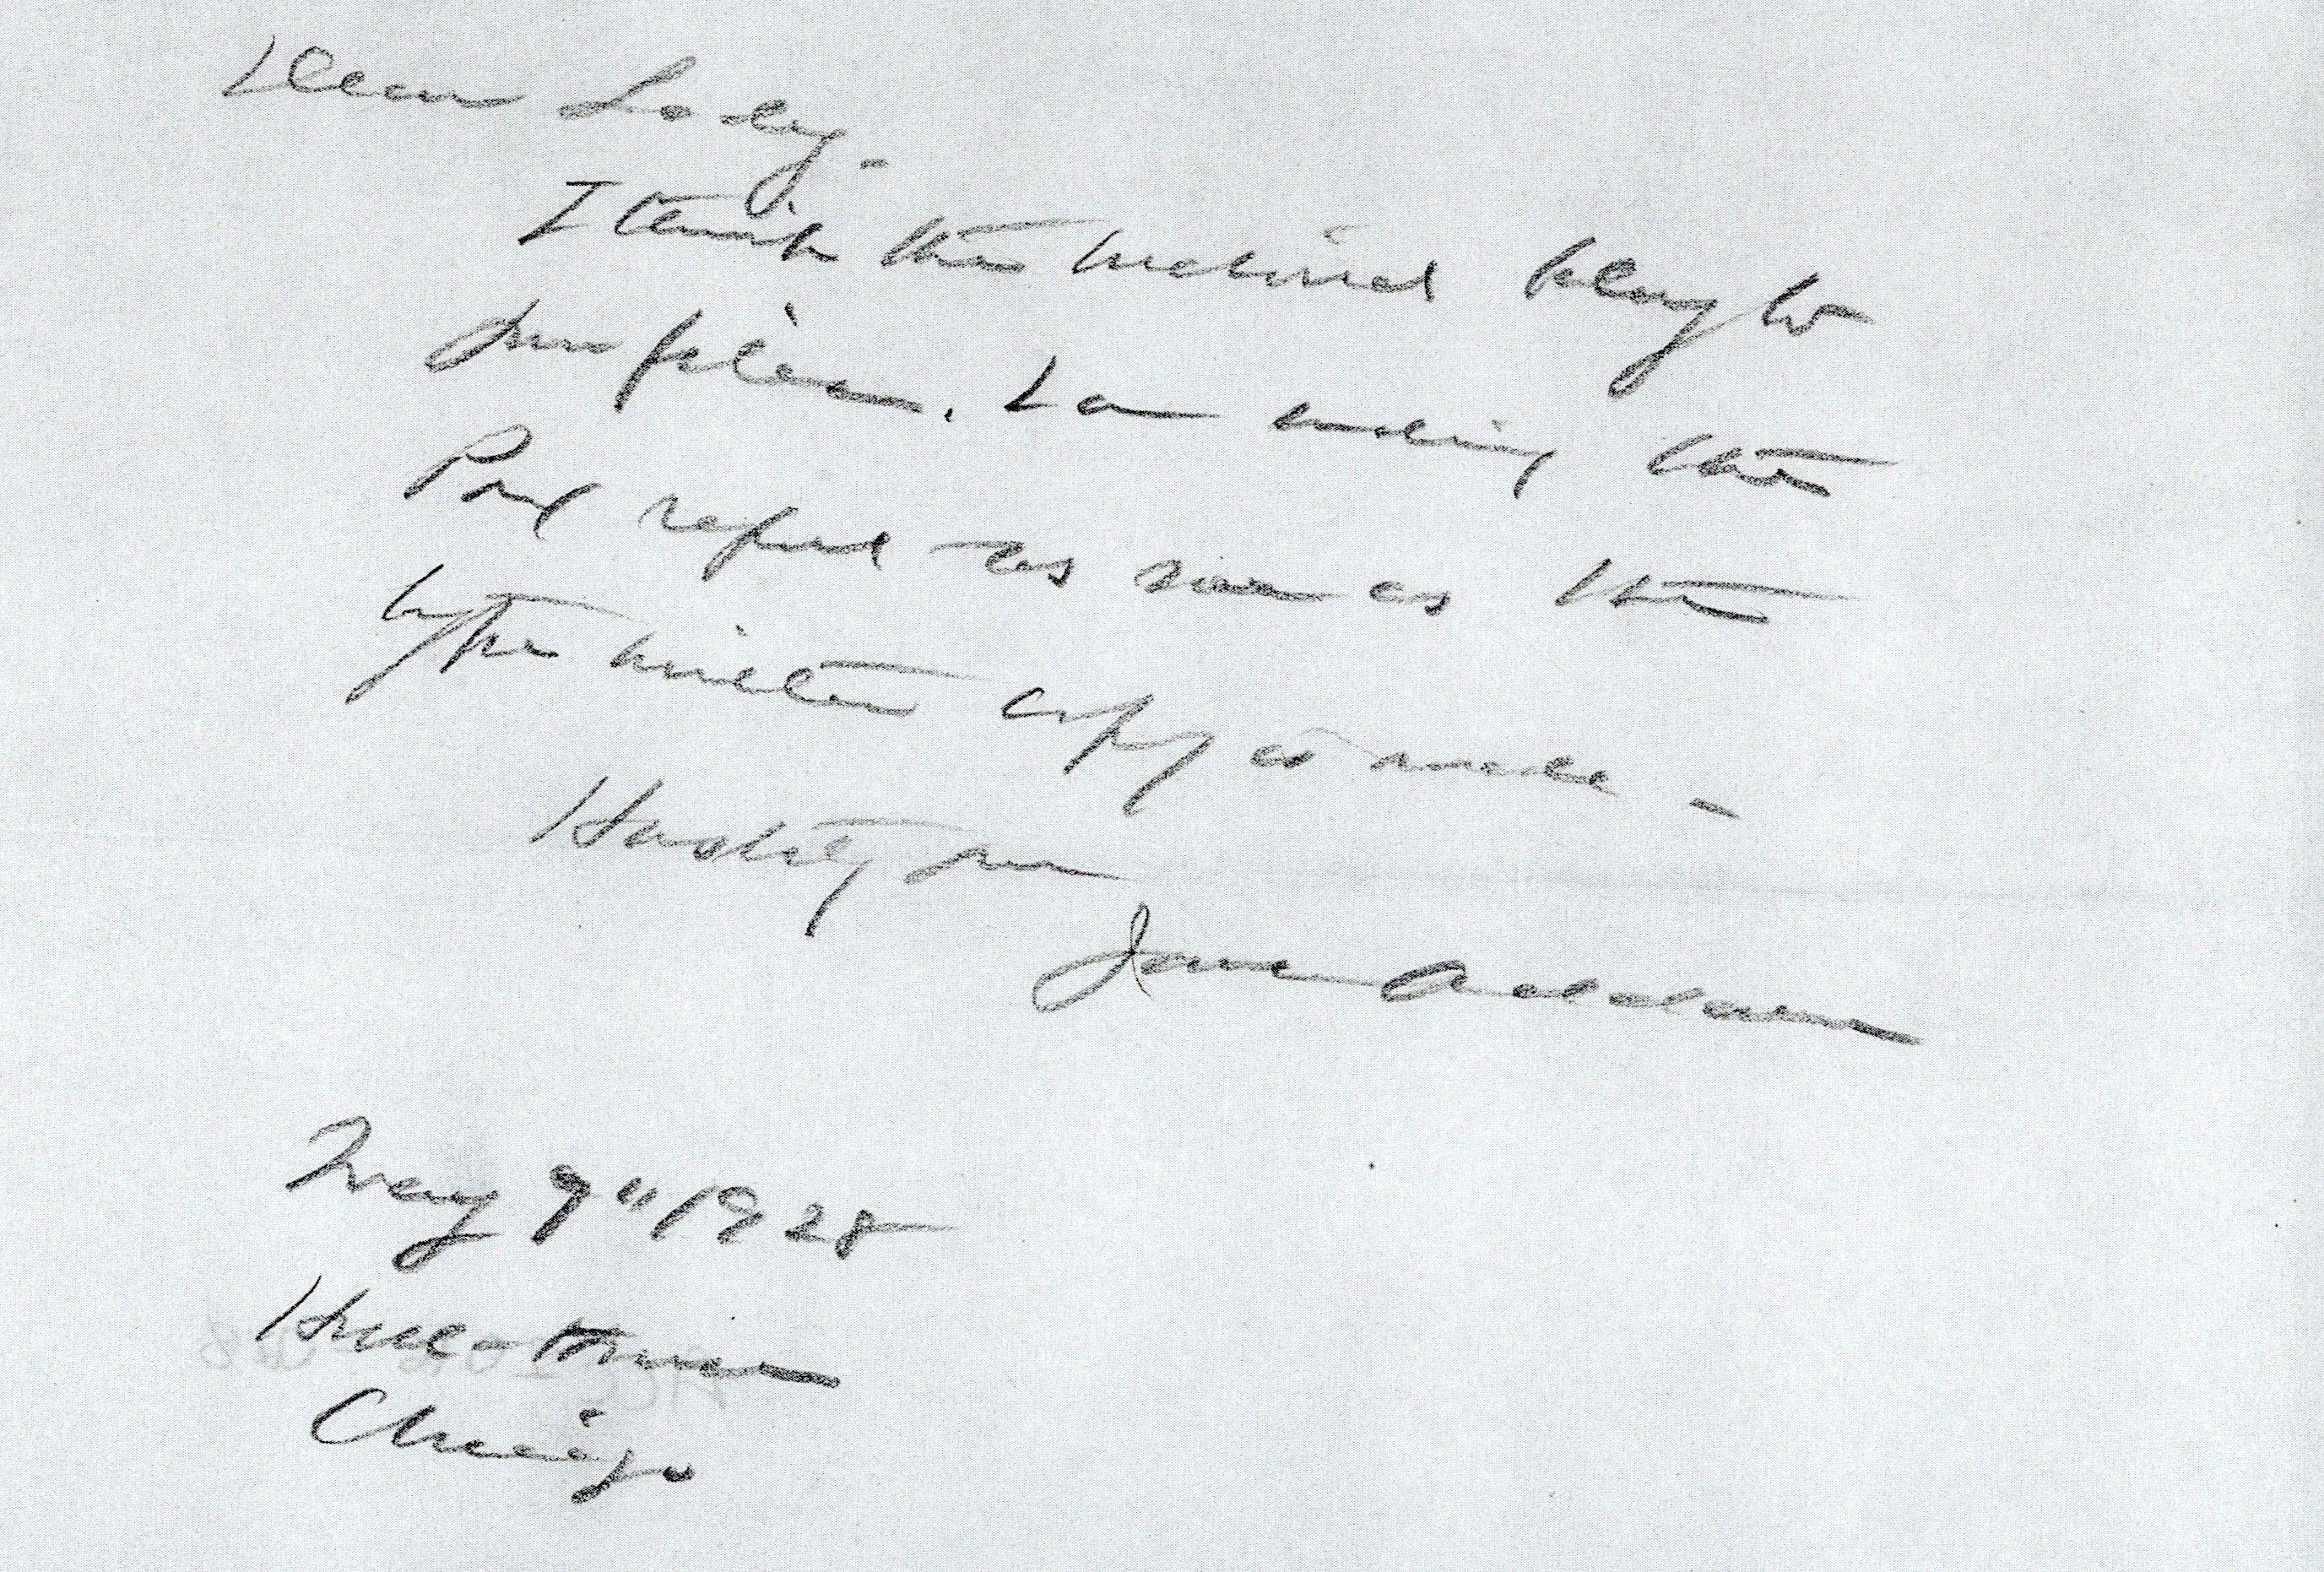 Dear Lady -
I think the belong to
your files. I am sending the
report as soon as the
type written copy is made -
Hastily yours
Jane Addams
May 9" 1928
Hull-House
Chicago